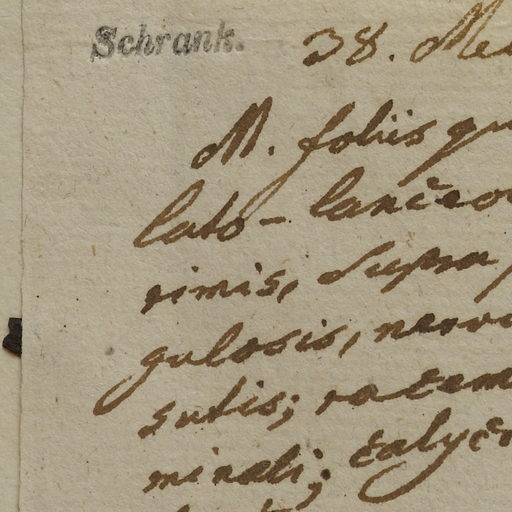 Schrank. 38. Me
M. foliis qu
lato- lanceo
rimis, supra
gulosis, nervo
sutis; racem
minali; calyci